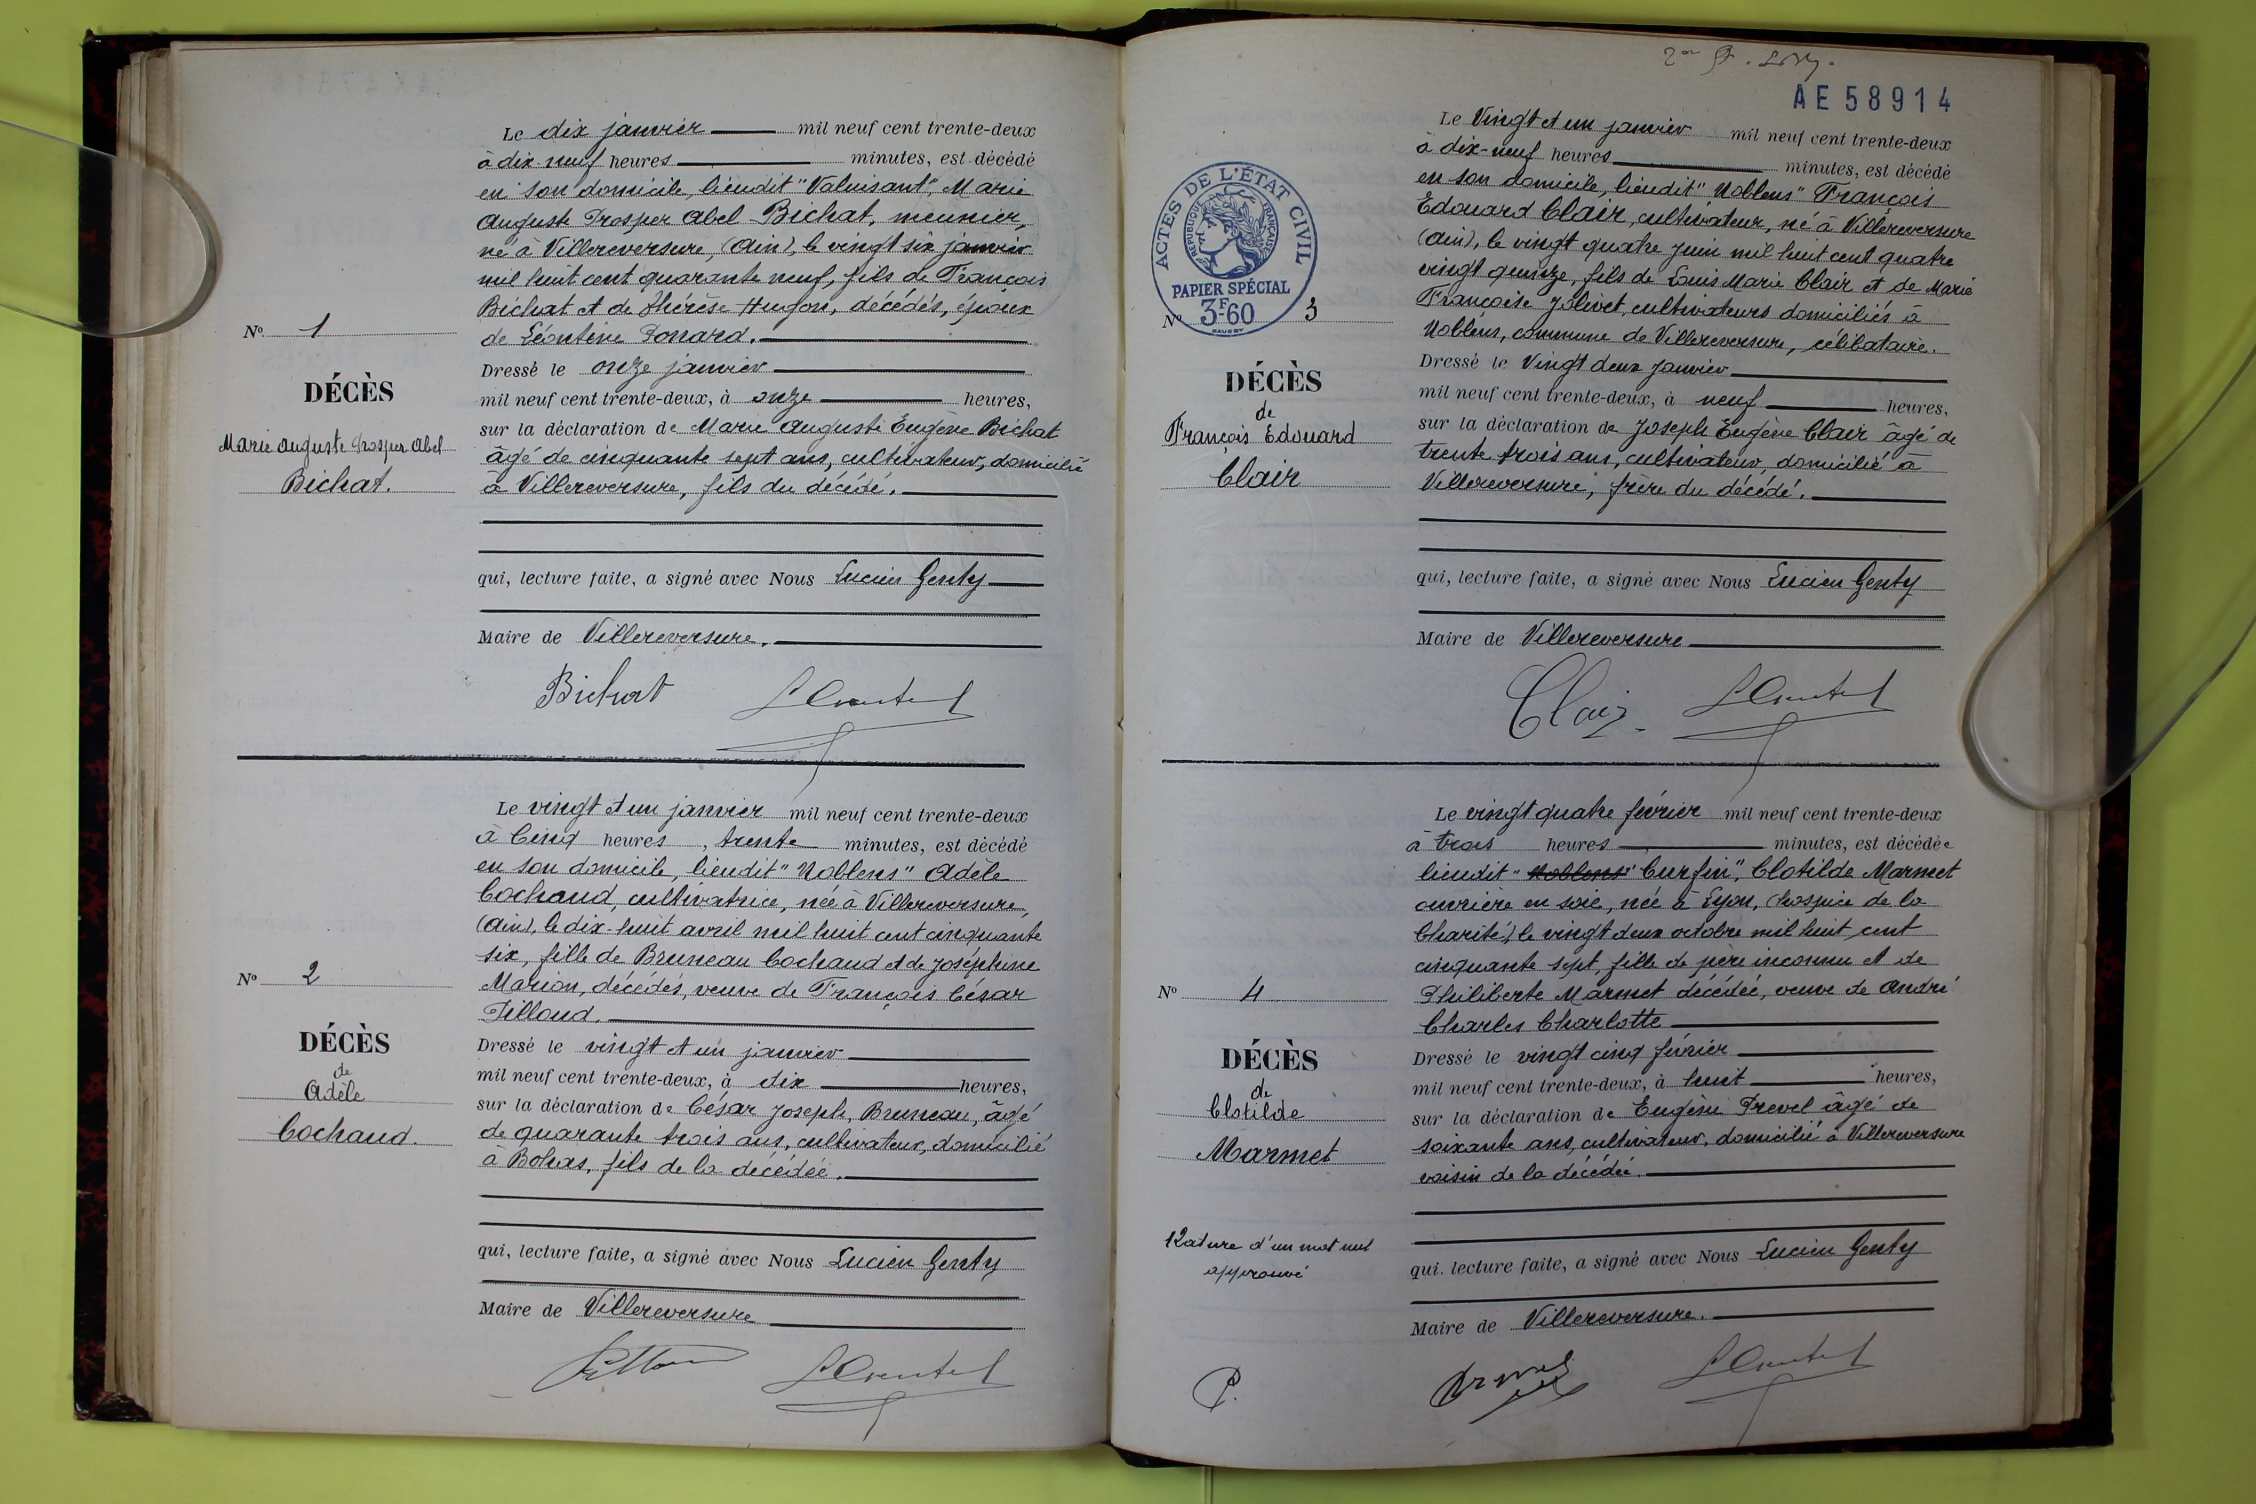 Le dix janvier mil neuf cent trente-deux
à dix-neuf heures minutes, est décédé
en son domicile, lieudit "Valuisant", Marie
Auguste Prosper Abel Bichat, meunier,
né à Villereversure, (Ain), le vingt six janvier
mil huit cent quarante neuf, fils de François
Bichat et de Thérèse Hugon, décédés, époux
de Léontine Ponard.
Nº 1
Dressé le onze janvier
DÉCÈS
mil neuf cent trente-deux, à onze heures,
sur la déclaration de Marie Auguste Eugène Bichat
Marie Auguste Prosper Abel
âgé de cinquante sept ans, cultivateur, domicilié
Bichat.
à Villereversure, fils du décédé.
qui, lecture faite, a signé avec Nous Lucien Genty
Maire de Villereversure.
Bichat
Le vingt et un janvier mil neuf cent trente-deux
à Cinq heures, trente minutes, est décédé
en son domicile, lieudit "Noblens" Adèle
Cochaud, cultivatrice, née à Villereversure,
(Ain), le dix-huit avril mil huit cent cinquante
six, fille de Bruneau Cochaud et de Joséphine
Nº 2
Marion, décédés, veuve de François César
Pilloud.
DÉCÈS
de
Adèle
Cochaud.
Dressé le vingt et un janvier
mil neuf cent trente-deux, à dix heures,
sur la déclaration de César Joseph, Bruneau, âgé
de quarante trois ans, cultivateur, domicilié
à Bohas, fils de la décédée.
qui, lecture faite, a signé avec Nous Lucien Genty
Maire de Villereversure
AE 58914
Le Vingt et un janvier mil neuf cent trente-deux
à dix-neuf heures minutes, est décédé
en son domicile, lieudit "Noblens" François
Edouard Clair, cultivateur, né à Villereversure
(Ain), le vingt quatre juin mil huit cent quatre
vingt quinze, fils de Louis Marie Clair et de Marie
Françoise Jolivet, cultivateurs domiciliés à
Noblens, commune de Villereversure, célibataire.
ACTES DE L'ÉTAT CIVIL
RÉPUBLIQUE FRANÇAISE
PAPIER SPÉCIAL
3F-60
Nº 3
DÉCÈS
de
François Edouard
Clair
Dressé le Vingt deux janvier
mil neuf cent trente-deux, à neuf heures,
sur la déclaration de Joseph Eugène Clair âgé de
trente trois ans, cultivateur, domicilié à
Villereversure, frère du décédé.
qui, lecture faite, a signé avec Nous Lucien Genty
Maire de Villereversure
Clair
Le vingt quatre février mil neuf cent trente-deux
à trois heures minutes, est décédée
lieudit "Noblens" Curfin", Clotilde Marmet
ouvrière en soie, née à Lyon, (hospice de la
Charité) le vingt deux octobre mil huit cent
cinquante sept, fille de père inconnu et de
Philiberte Marmet décédée, veuve de André
Charles Charlotte
Nº 4
DÉCÈS
de
Clotilde
Marmet
Dressé le vingt cinq février
mil neuf cent trente-deux, à huit heures,
sur la déclaration de Eugène Prevel âgé de
soixante ans, cultivateur, domicilié à Villereversure
voisin de la décédée.
Rature d'un mot nul
approuvé
qui, lecture faite, a signé avec Nous Lucien Genty
Maire de Villereversure.
P.